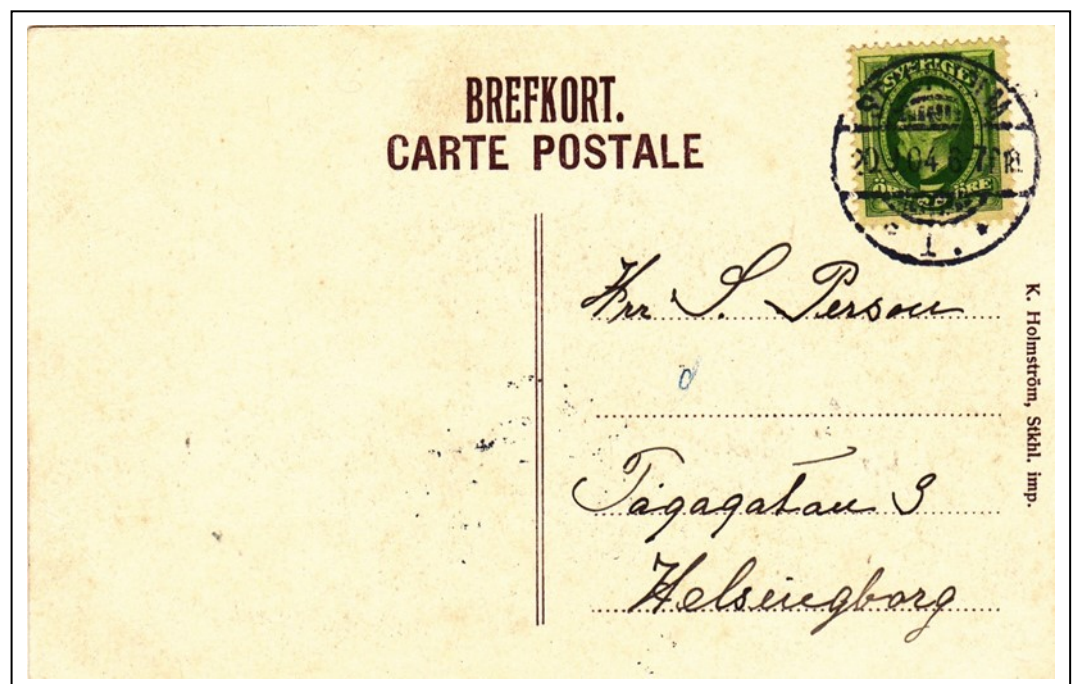 BREFKORT.
CARTE POSTALE
SVERIGE
ÖRE
1.
Hrr S. Person
Tågagatan 3
Helsingborg
K. Holmström, Stkhl. imp.